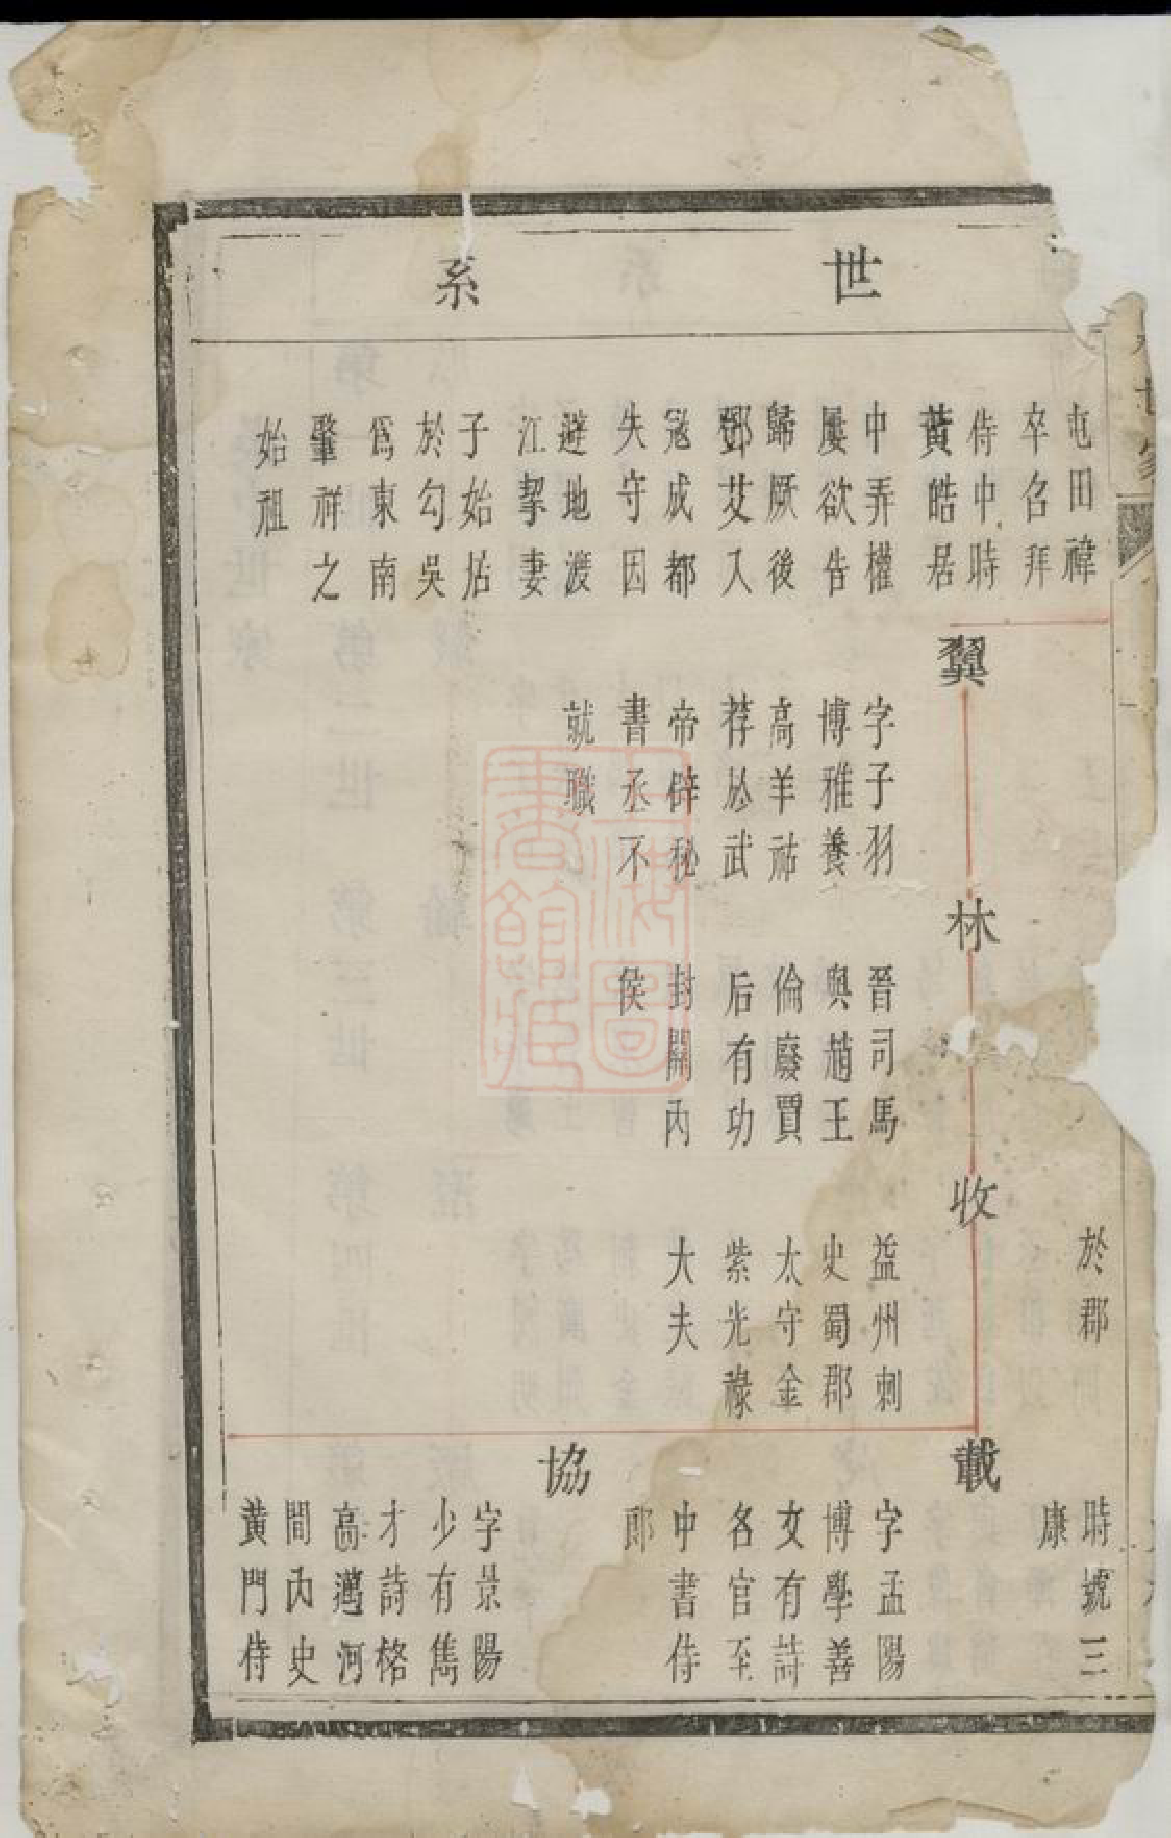 世系
屯田禕
卒召拜
侍中時
黃皓居
中弄權
屢欲告
歸厥後
鄧艾入
寇成都
失守因
避地渡
江挈妻
子始居
於勾吳
爲東南
肇祥之
始祖
翼
字子羽
博雅養
高羊祜
荐於武
帝辟秘
書丞不
就職
林
晉司馬
與趙王
倫廢賈
后有功
封關內
侯
於郡
收
益州刺
史蜀郡
太守金
紫光祿
大夫
時號三
康
載
字孟陽
博學善
文有詩
名官至
中書侍
郎
協
字景陽
少有雋
才詩格
高邁河
間內史
黃門侍
上海圖書館藏